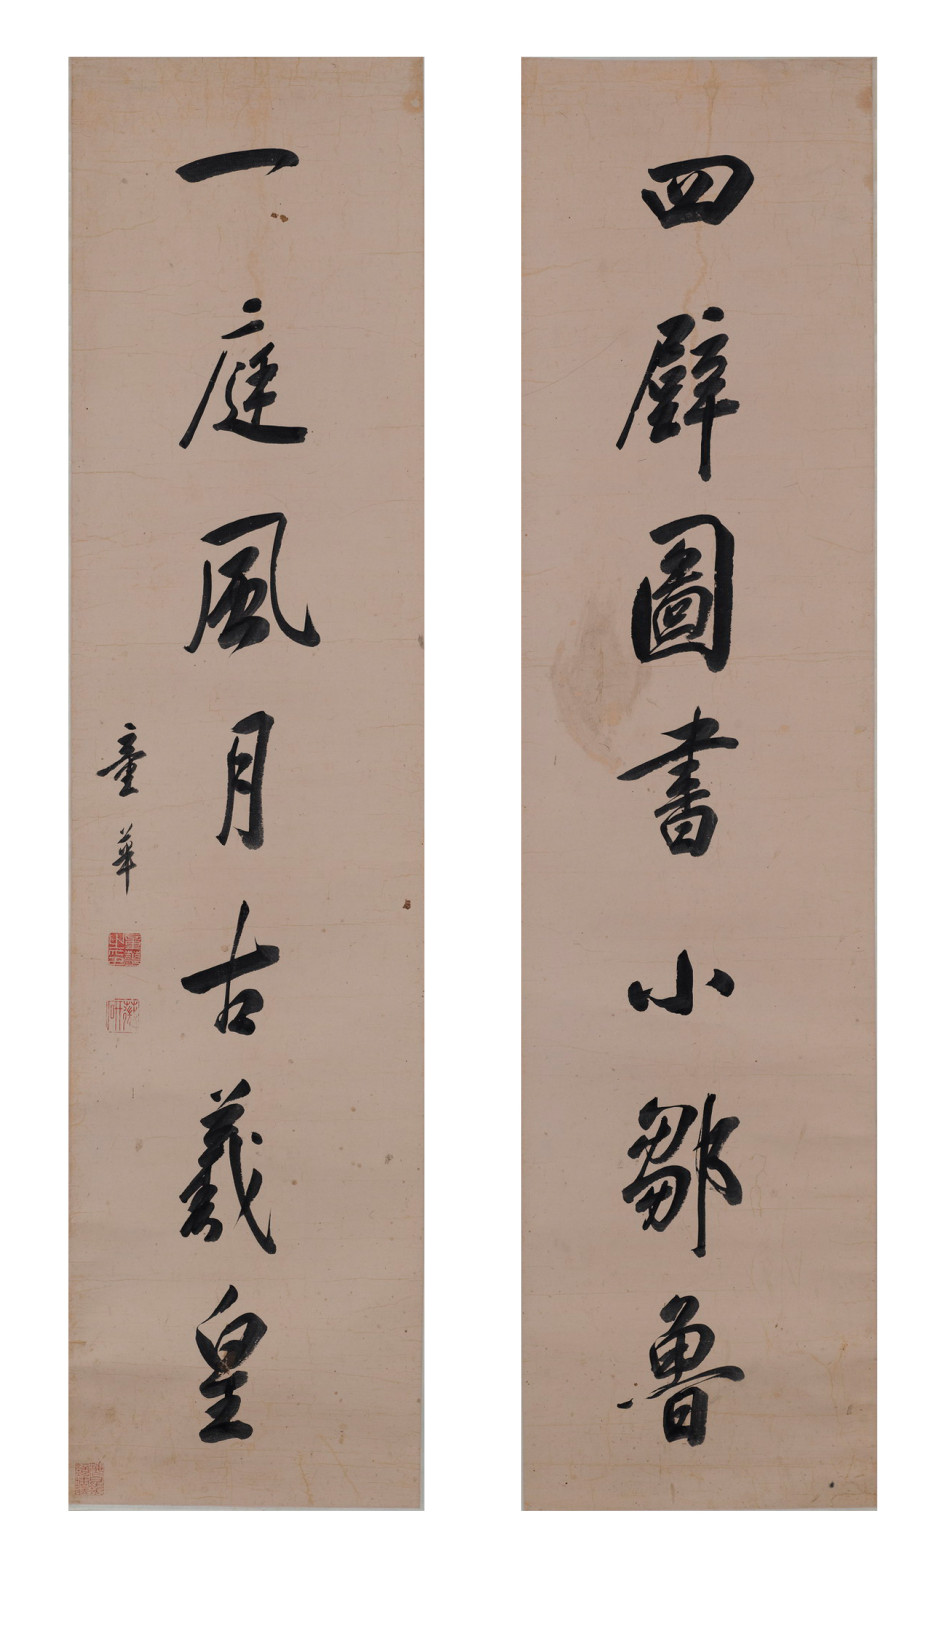 四壁圖書小鄒魯
一庭風月古羲皇
童華